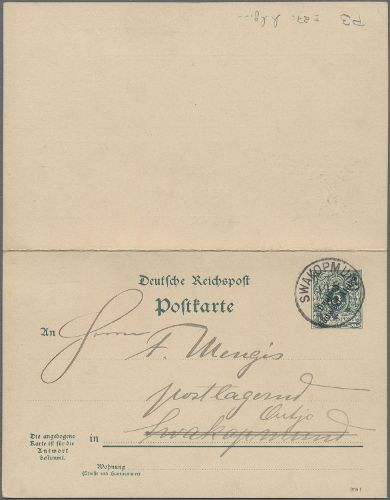 P3
Deutsche Reichspost
Postkarte
SWAKOPMUND
An Herrn
F. Mengis
postlagernd
Outjo
in Swakopmund
Die angebogene
Karte ist für die
Antwort
bestimmt.
Wohnung
(Straße und Hausnummer)